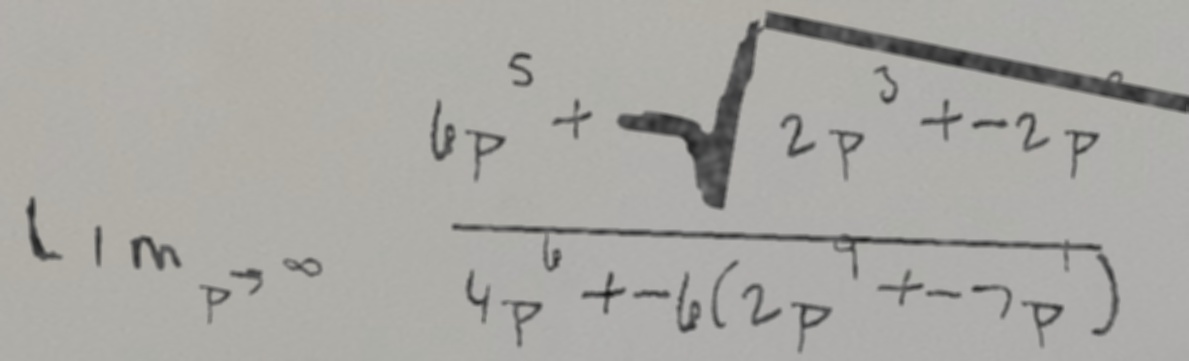 \lim_{p \to \infty} \frac{6p^5 + \sqrt{2p^3 + -2p}}{4p^6 + -6(2p^9 + -7p^1)}